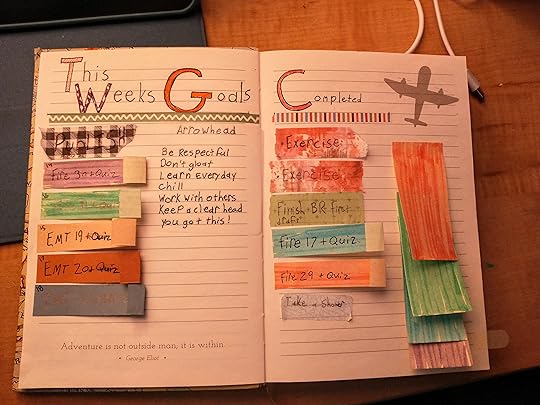 This Weeks Goals
Publish
Fire 30 + Quiz
EMT 19 + Quiz
EMT 20 + Quiz
Arrowhead
Be Respectful
Don't gloat
Learn Everyday
Chill
Work with others
Keep a clear head
You got this!
Adventure is not outside man; it is within.
• George Eliot •
Completed
• Exercise
• Exercise
Finish • BR first
draft
Fire 17 + Quiz
Fire 29 + Quiz
Take a Shower